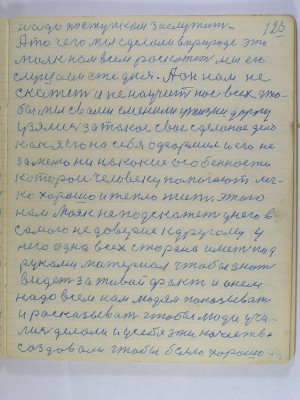 123
надо поступкам заслужить.
А то чего мы сделаем в природе это
маяк нам всем расскажет мы его
слушаем сто дня. А он нам не
скажет и не научит нас всех что-
бы мы с вами сменили жизни дорогу
взялись за такое свое сделанное дело
как я его на себя одобрил и его не
заметно ни на какие особенности
которые человеку помогают лег-
ко хорошо и тепло жить, этого
нам маяк не подскажет у него в
самого недоверие к другому у
него одна всех сторона иметь под
руками материал чтобы знать
видеть за живой факт и о нем
надо всем нам людям показывать
и рассказывать чтобы люди учи-
лись делали и у себя эти качества
создавали чтобы было хорошо